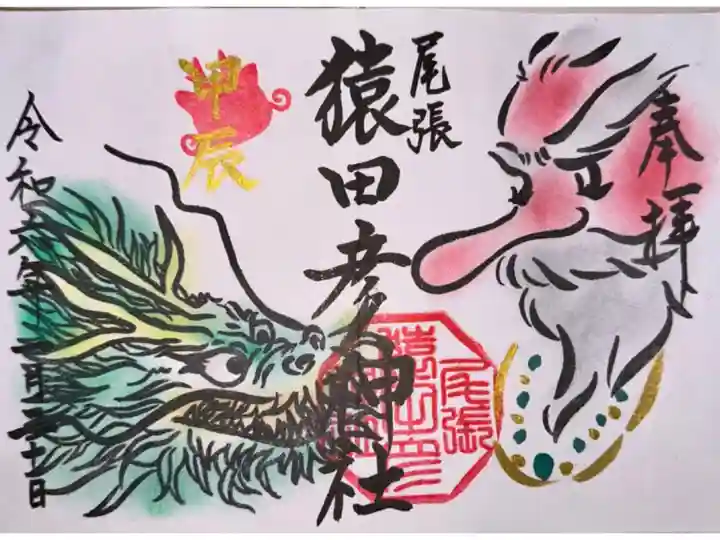 奉拝
尾張
猿田彦神社
甲辰
令和六年一月三十日
尾張
猿田彦